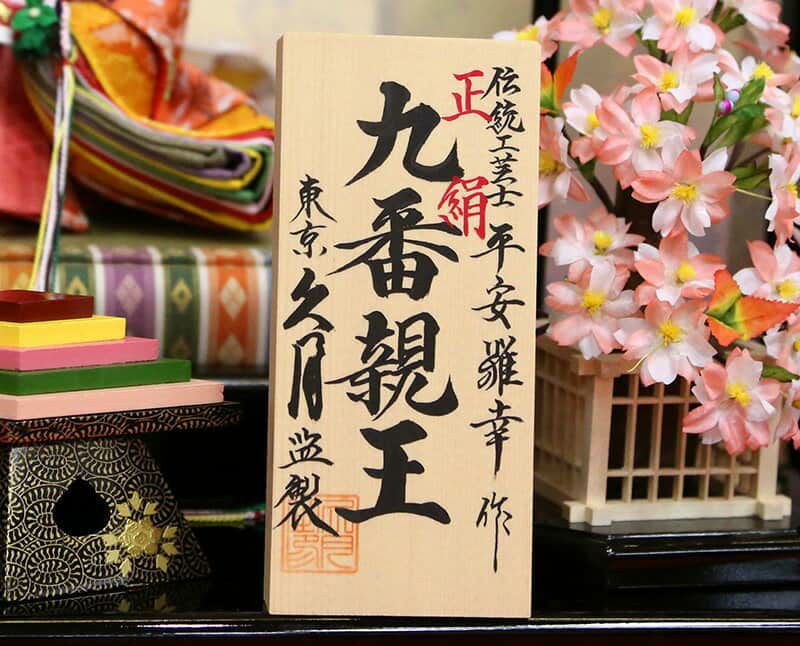 伝統工芸士 平安雛幸 作
正絹
九番親王
東京 久月 監製